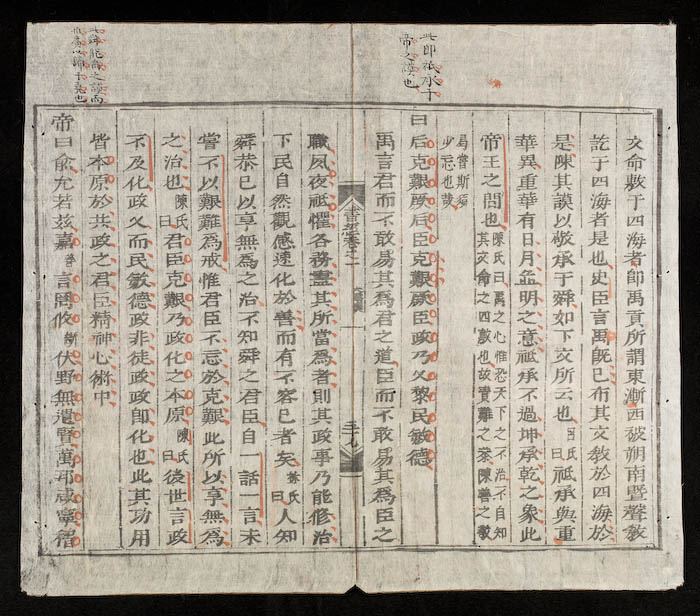 此即祗承于
帝之謨也
文命敷于四海者即禹貢所謂東漸西被朔南暨聲教
訖于四海者是也史臣言禹既已布其文教於四海於
是陳其謨以敬承于舜如下文所云也呂氏曰祗承與重
華異重華有日月並明之意祗承不過坤承乾之象此
帝王之間也陳氏曰禹之心惟恐天下之不治不自知
其文命之四敷也故責難之恭陳善之敬
曷嘗斯須
少忘也哉
曰后克艱厥后臣克艱厥臣政乃乂黎民敏德
禹言君而不敢易其為君之道臣而不敢易其為臣之
三十九
職夙夜祗懼各務盡其所當為者則其政事乃能修治
下民自然觀感速化於善而有不容已者矣蘇氏曰人知
舜恭已以享無為之治不知舜之君臣自一話一言未
嘗不以艱難為戒惟君臣不忘於克艱此所以享無為
之治也陳氏曰君臣克艱乃政化之本原陳氏曰後世言政
不及化政乂而民敏德政非徒政政即化也此其功用
皆本原於共政之君臣精神心術中
帝曰俞允若茲嘉善言罔攸所伏野無遺賢萬邦咸寧稽